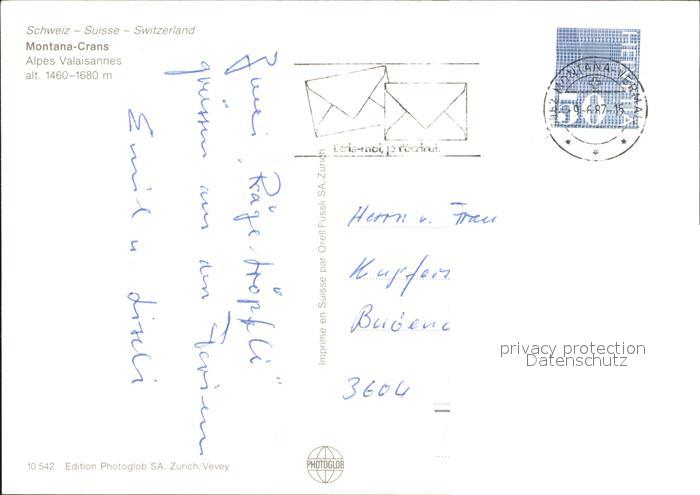 Schweiz – Suisse – Switzerland
Montana-Crans
Alpes Valaisannes
alt. 1460–1680 m
Zwei "Räge-tröpfli"
grüssen aus den Ferien
Emil u. Liseli
Imprimé en Suisse par Orell Füssli SA. Zürich
Ecris-moi, je t'écrirai.
HELVETIA
50
3962 MONTANA-VERMALA
Herrn u. Frau
3604
privacy protection
Datenschutz
10 542 Edition Photoglob SA. Zurich/Vevey
PHOTOGLOB